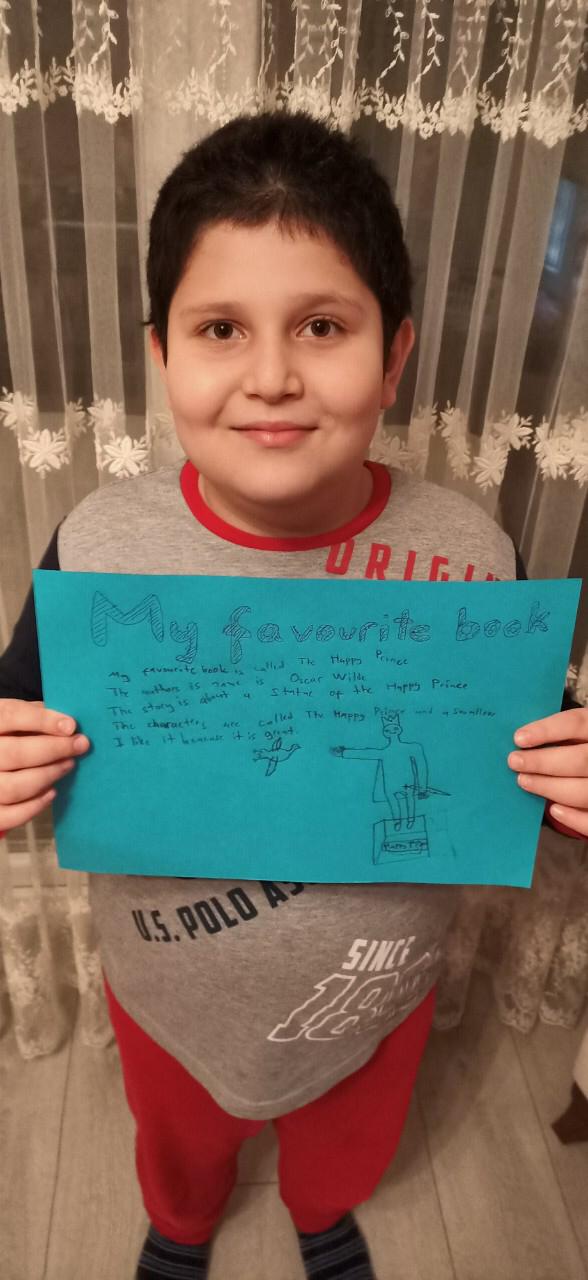 ORIGIN
My favourite book
My favourite book is called The Happy Prince
The authors is name is Oscar Wilde
The story is about a statue of the Happy Prince
The characters are called The Happy Prince and a swallow
I like it because it is great.
Happy
U.S. POLO AS
SINCE